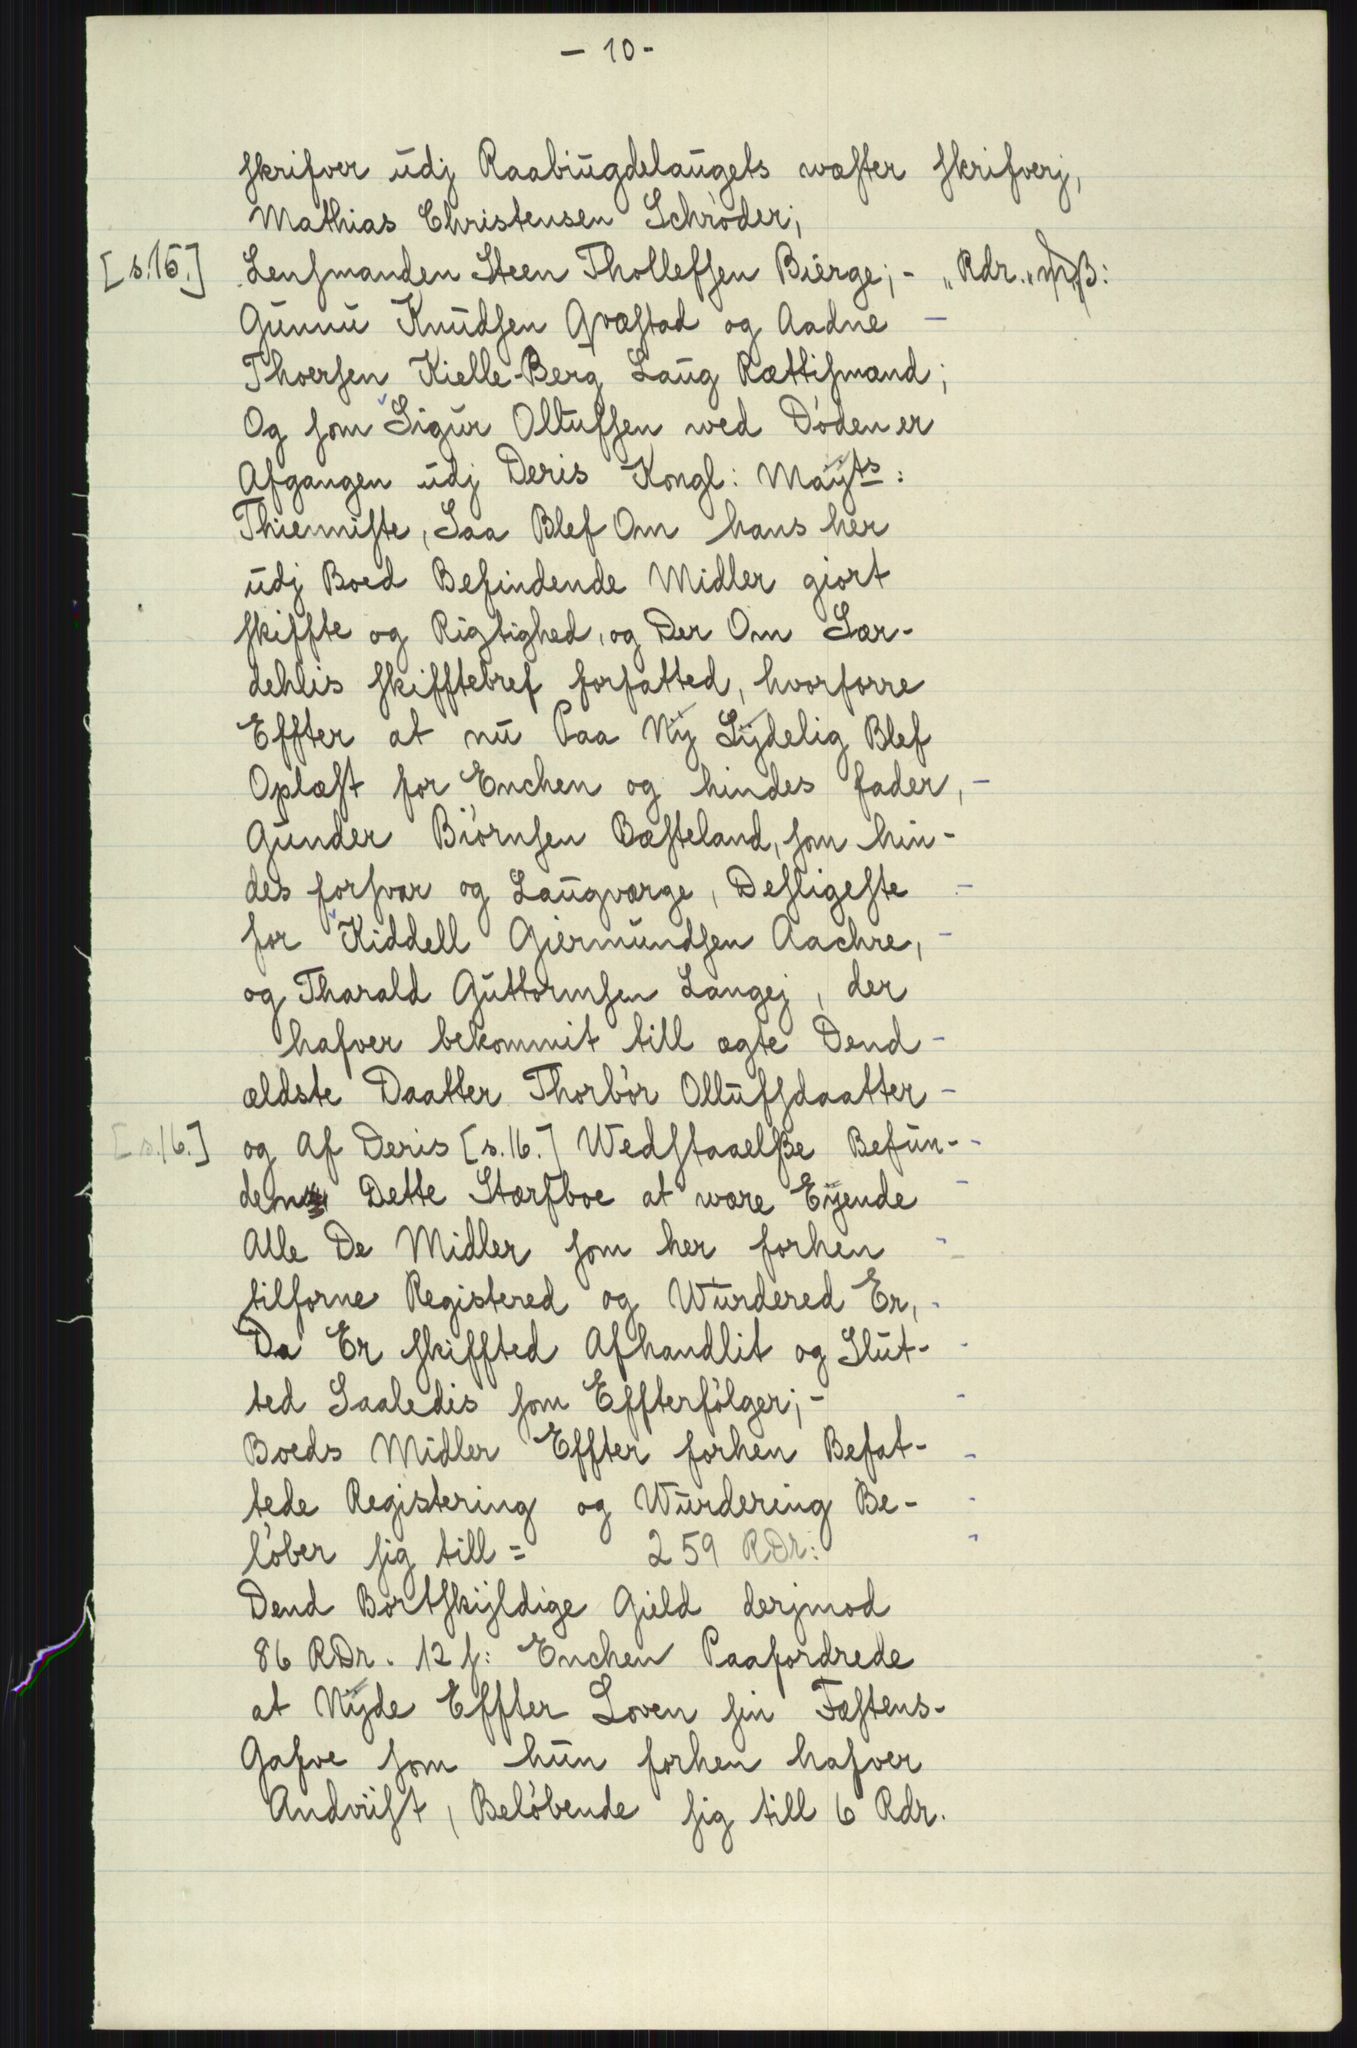 - 10 -
skrifver udj Raabiugdelaugets wæster skrifverj,
Mathias Christensen Schrøder;
[s.15.] Lensmanden Steen Thollefsen Biërge; - „ Rdr. „ ß:
Gunnu Knudsen Qvæstad og Aadne -
Thoersen Kielle-Berg Laug Rættismænd;
Og som Sigur Ollufsen wed Døden er
Afgangen udj Deris Kongl: Mayts:
Thienniste, Saa Blef Om hans her
udj Boed Befindende Midler giort
skiffte og Rigtighed, og Der Om Sær-
dehlis skifftebref forfatted, hvorforre
Effter at nu Paa Nÿ Lÿdelig Blef
Oplæst for Enchen og hindes fader, -
Gunder Biørnsen Bæsteland, som hin-
des forsvar og Laugværge, Desligeste -
for Kiddell Giermundsen Aachre, -
og Tharald Guttormsen Langej, der
hafver bekommit till ægte Dend -
ældste Daatter Thorbør Ollufsdaatter -
[s.16.] og Af Deris [s.16.] Wedstaaelße Befun- -
den Dette Stærfboe at være Eÿende -
Alle De Midler som her forhen -
tilforne Registered og Wurdered Er, -
Da Er skiffted Afhandlit og Slut- -
ted Saaledis som Effterfølger; - -
Boeds Midler Effter forhen Befat- -
tede Registering og Wurdering Be- -
løber sig till = 259 RDr: -
Dend Bortskÿldige Gield derjmod
86 RDr. 12 s: Enchen Paafordrede
at Nÿde Effter Loven sin Fæstens-
Gafve som hun forhen hafver
Andvist, Beløbende sig till 6 Rdr.